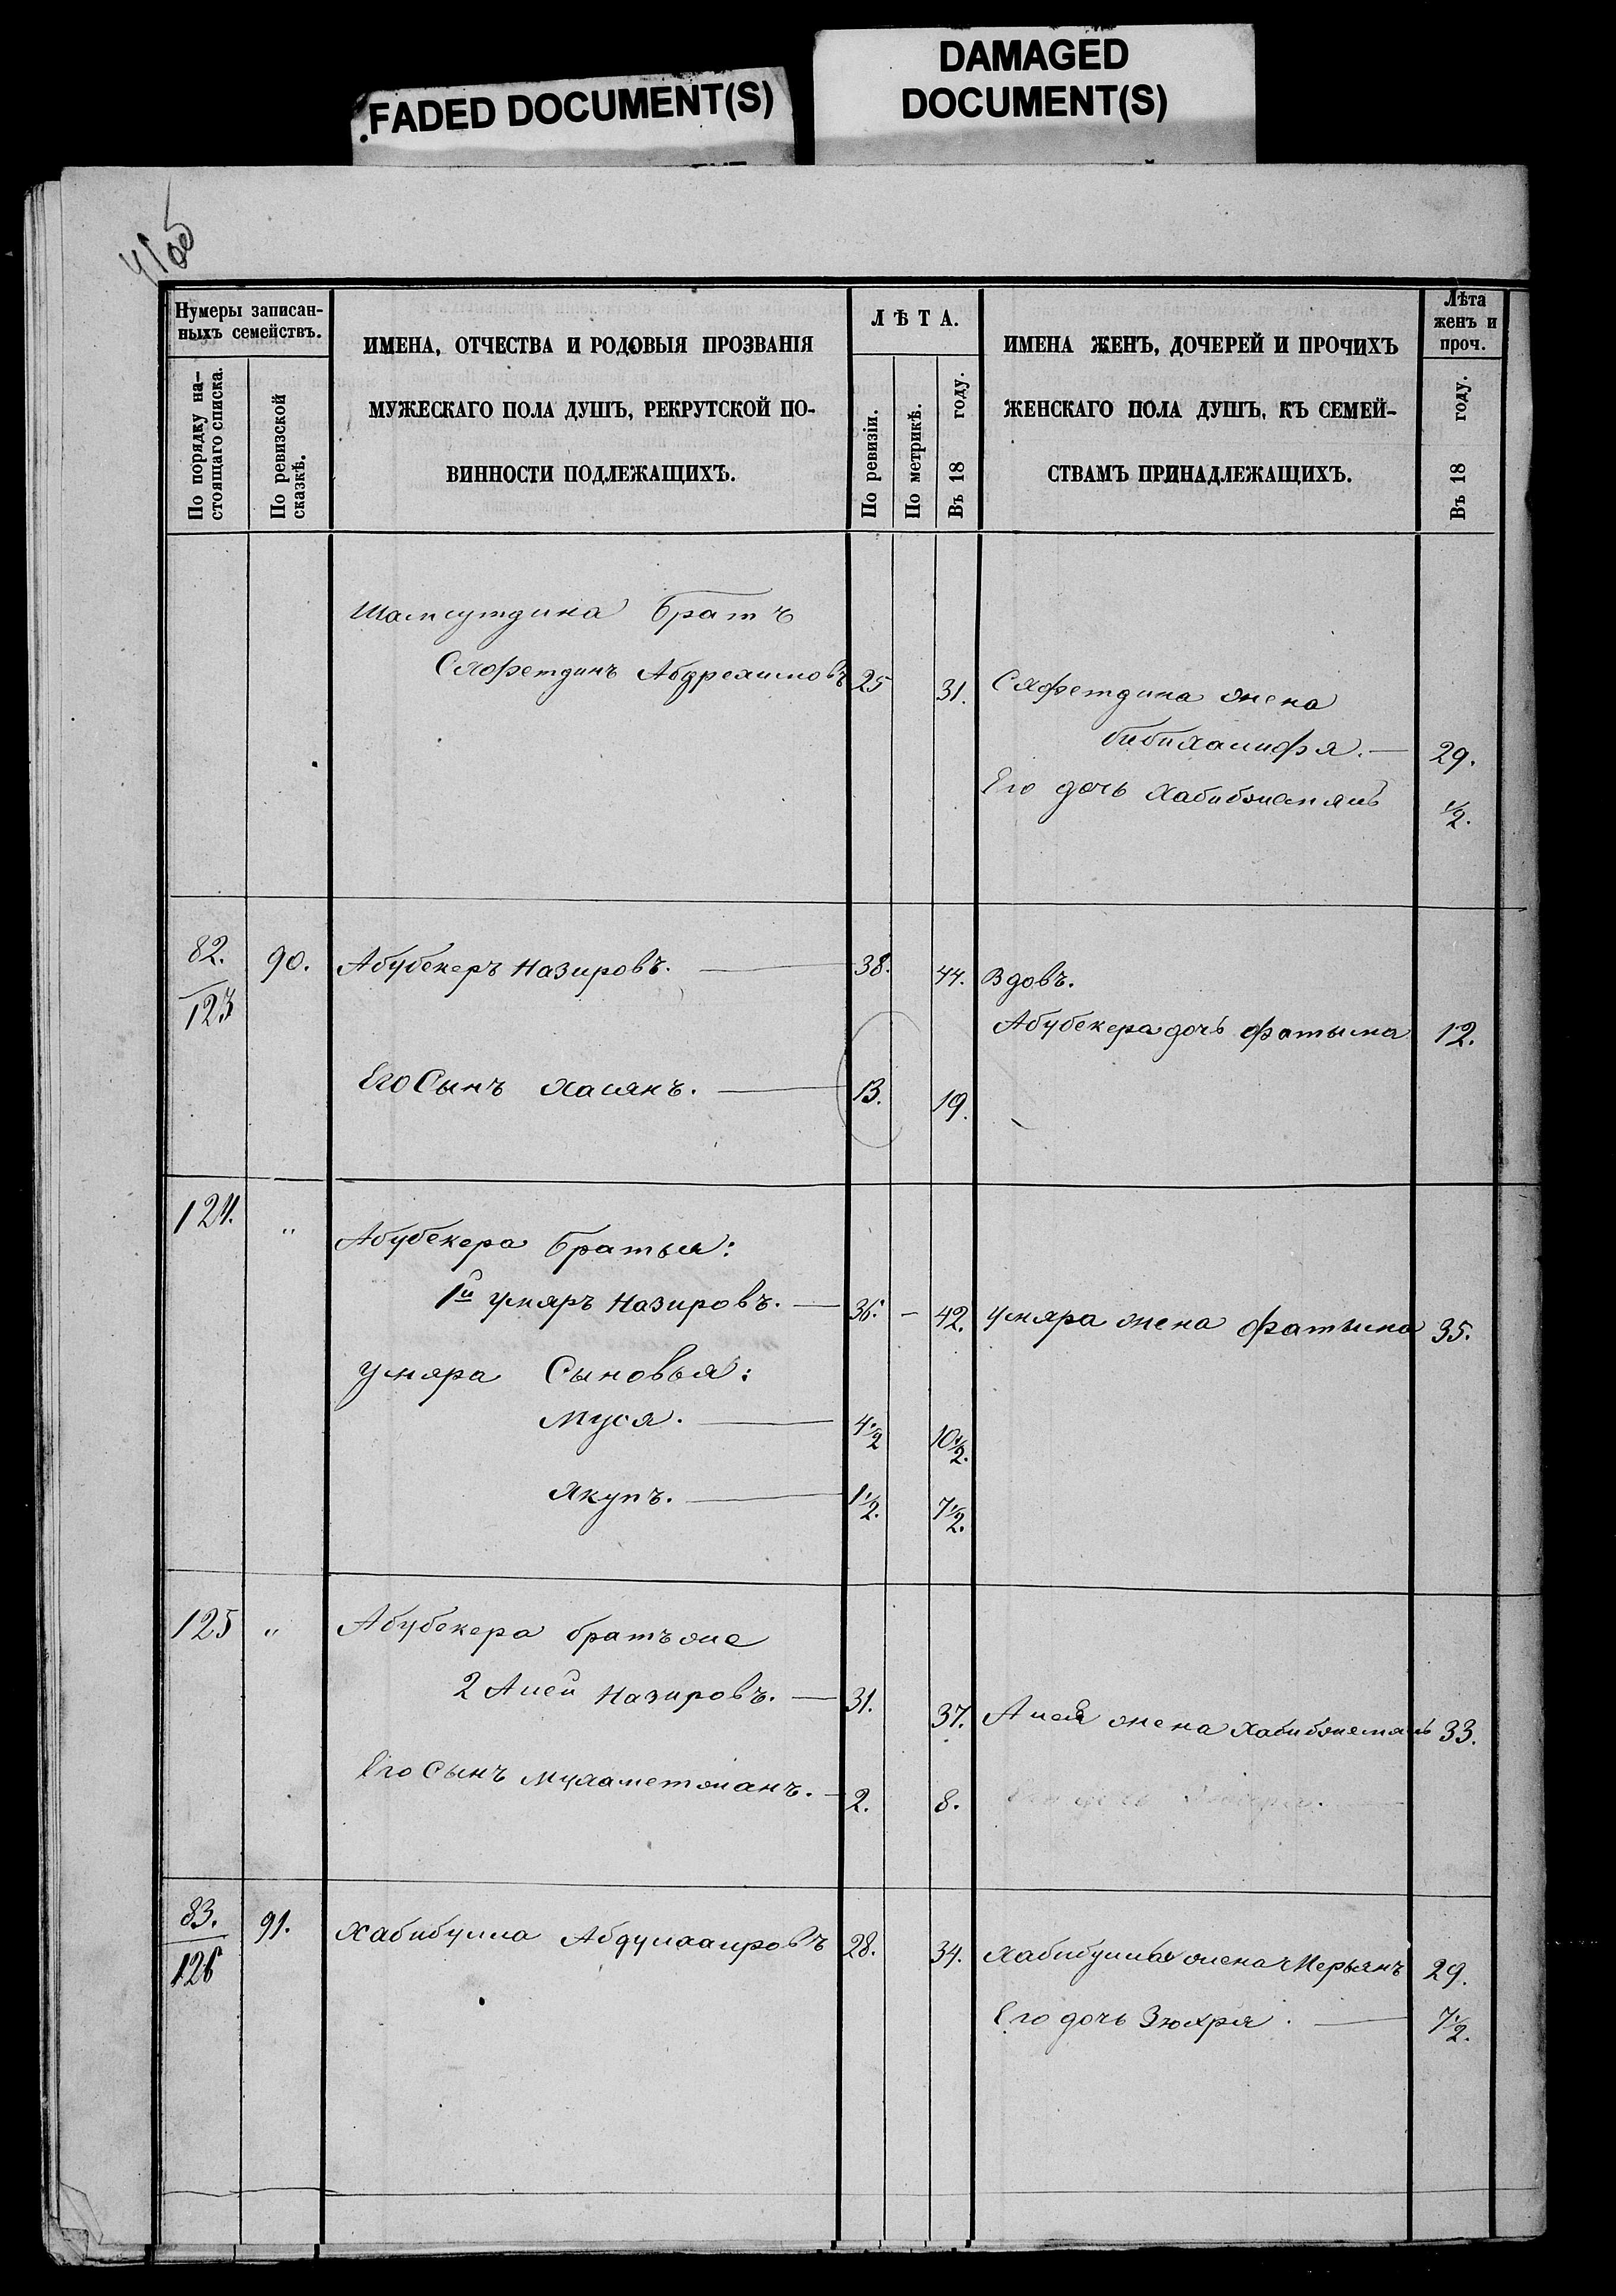 FADED DOCUMENT(S)
DAMAGED
DOCUMENT(S)
41об
Нумеры записан-
ныхъ семействъ.
По порядку на-
стоящаго списка.
По ревизской
сказкѣ.
ИМЕНА, ОТЧЕСТВА И РОДОВЫЯ ПРОЗВАНІЯ
МУЖЕСКАГО ПОЛА ДУШЪ, РЕКРУТСКОЙ ПО-
ВИННОСТИ ПОДЛЕЖАЩИХЪ.
ЛѢТА.
По ревизіи.
По метрикѣ.
Въ 18 году.
ИМЕНА ЖЕНЪ, ДОЧЕРЕЙ И ПРОЧИХЪ
ЖЕНСКАГО ПОЛА ДУШЪ, КЪ СЕМЕЙ-
СТВАМЪ ПРИНАДЛЕЖАЩИХЪ.
Лѣта
женъ и
проч.
Въ 18 году.
Шамсутдина братъ
Сяфетдинъ Абдрехимовъ 25 31. Сяфетдина жена
бибихалифя. — 29.
Его дочь Хабибжемяль ½.
82. 90. Абубекеръ Назировъ. — 38. 44. Вдовъ.
123
Абубекера дочь Фатыма 12.
Его Сынъ Хасянъ. — 13. 19.
124. „ Абубекера братья:
1й Умяръ Назировъ. — 36. — 42. Умяра жена Фатыма 35.
Умяра Сыновья:
Муся. — 4½ 10½.
Якупъ. — 1½. 7½.
125 „ Абубекера братъ же
2 Алей Назировъ. — 31. 37. Алея жена Хабибжемяль 33.
Его Сынъ Мухаметжанъ. — 2. 8.
83. 91. Хабибулла Абдулкаировъ 28. 34. Хабибуллы жена Мерьянъ 29.
126
Его дочь Зюхря. — 7½.